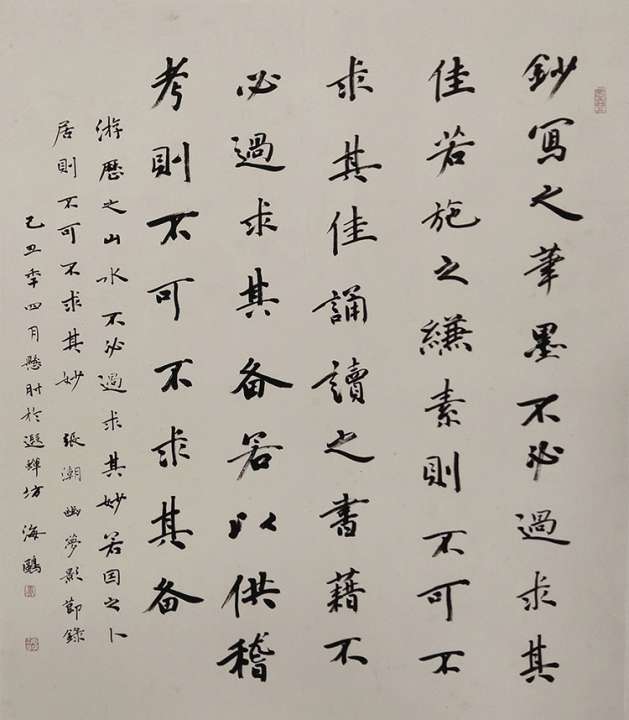 鈔寫之筆墨不必過求其
佳若施之縑素則不可不
求其佳誦讀之書藉不
必過求其备若以供稽
考則不可不求其备
游歷之山水不必過求其妙若因之卜
居則不可不求其妙 張潮幽夢影節錄
己丑年四月懸肘於遐輝坊 海鷗